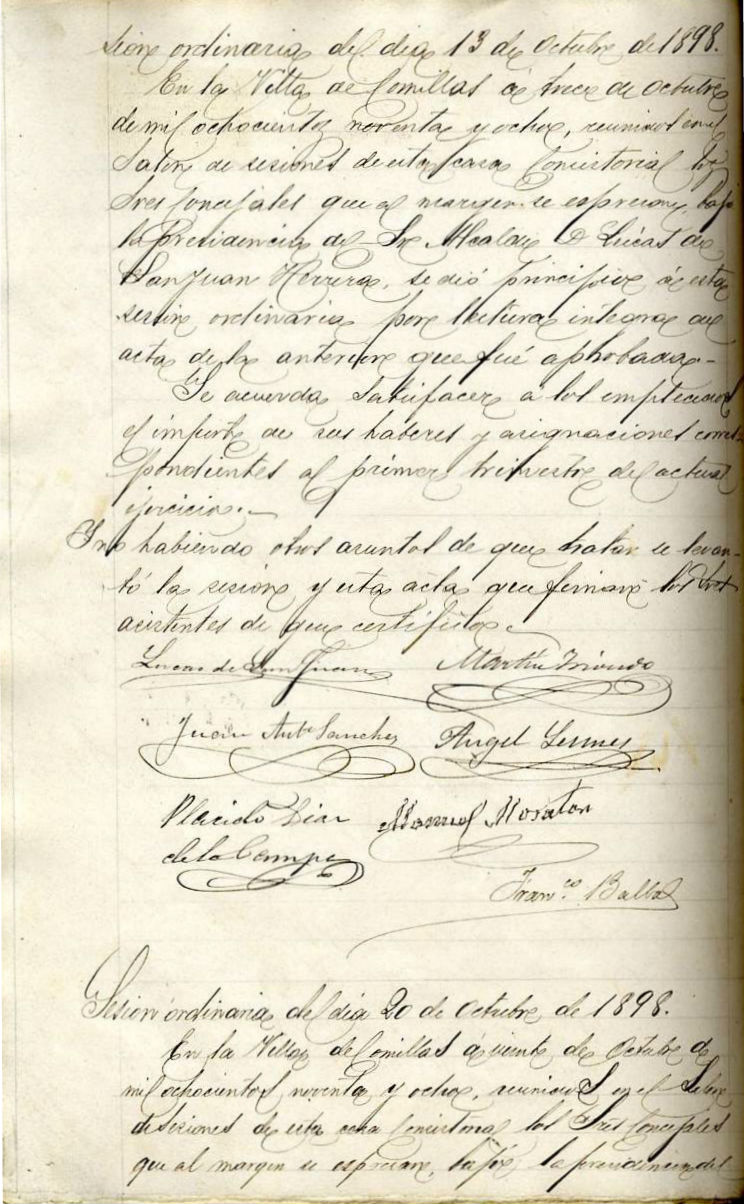 sion ordinaria del dia 13 de Octubre de 1898.
En la Villa de Comillas á trece de Octubre
de mil ochocientos noventa y ocho, reunidos en el
Salon de sesiones de esta casa Consistorial los
Sres Concejales que al margen se espresan, bajo
la Presidencia del Sr Alcalde D Lúcas de
San Juan Herrera, se dió principio á esta
sesion ordinaria por lectura integra del
acta de la anterior que fué aprobada.-
Se acuerda satisfacer a los empleados
el importe de sus haberes y asignaciones corres
pondientes al primer trimestre del actual
ejercicio.-
Y no habiendo otros asuntos de que tratar se levan-
tó la sesion y esta acta que firman los Sres
asistentes de que certifico.
Lucas de San Juan Martin Triondo
Juan Antº Sanchez Angel
Placido Diaz Manuel
de la Campa
Franco. Balbas
Sesion ordinaria del dia 20 de Octubre de 1898.
En la Villa de Comillas á veinte de Octubre de
mil ochocientos noventa y ocho, reunidos en el Salon
de sesiones de esta casa Consistorial los Sres Concejales
que al margen se espresan, bajo la presidencia del